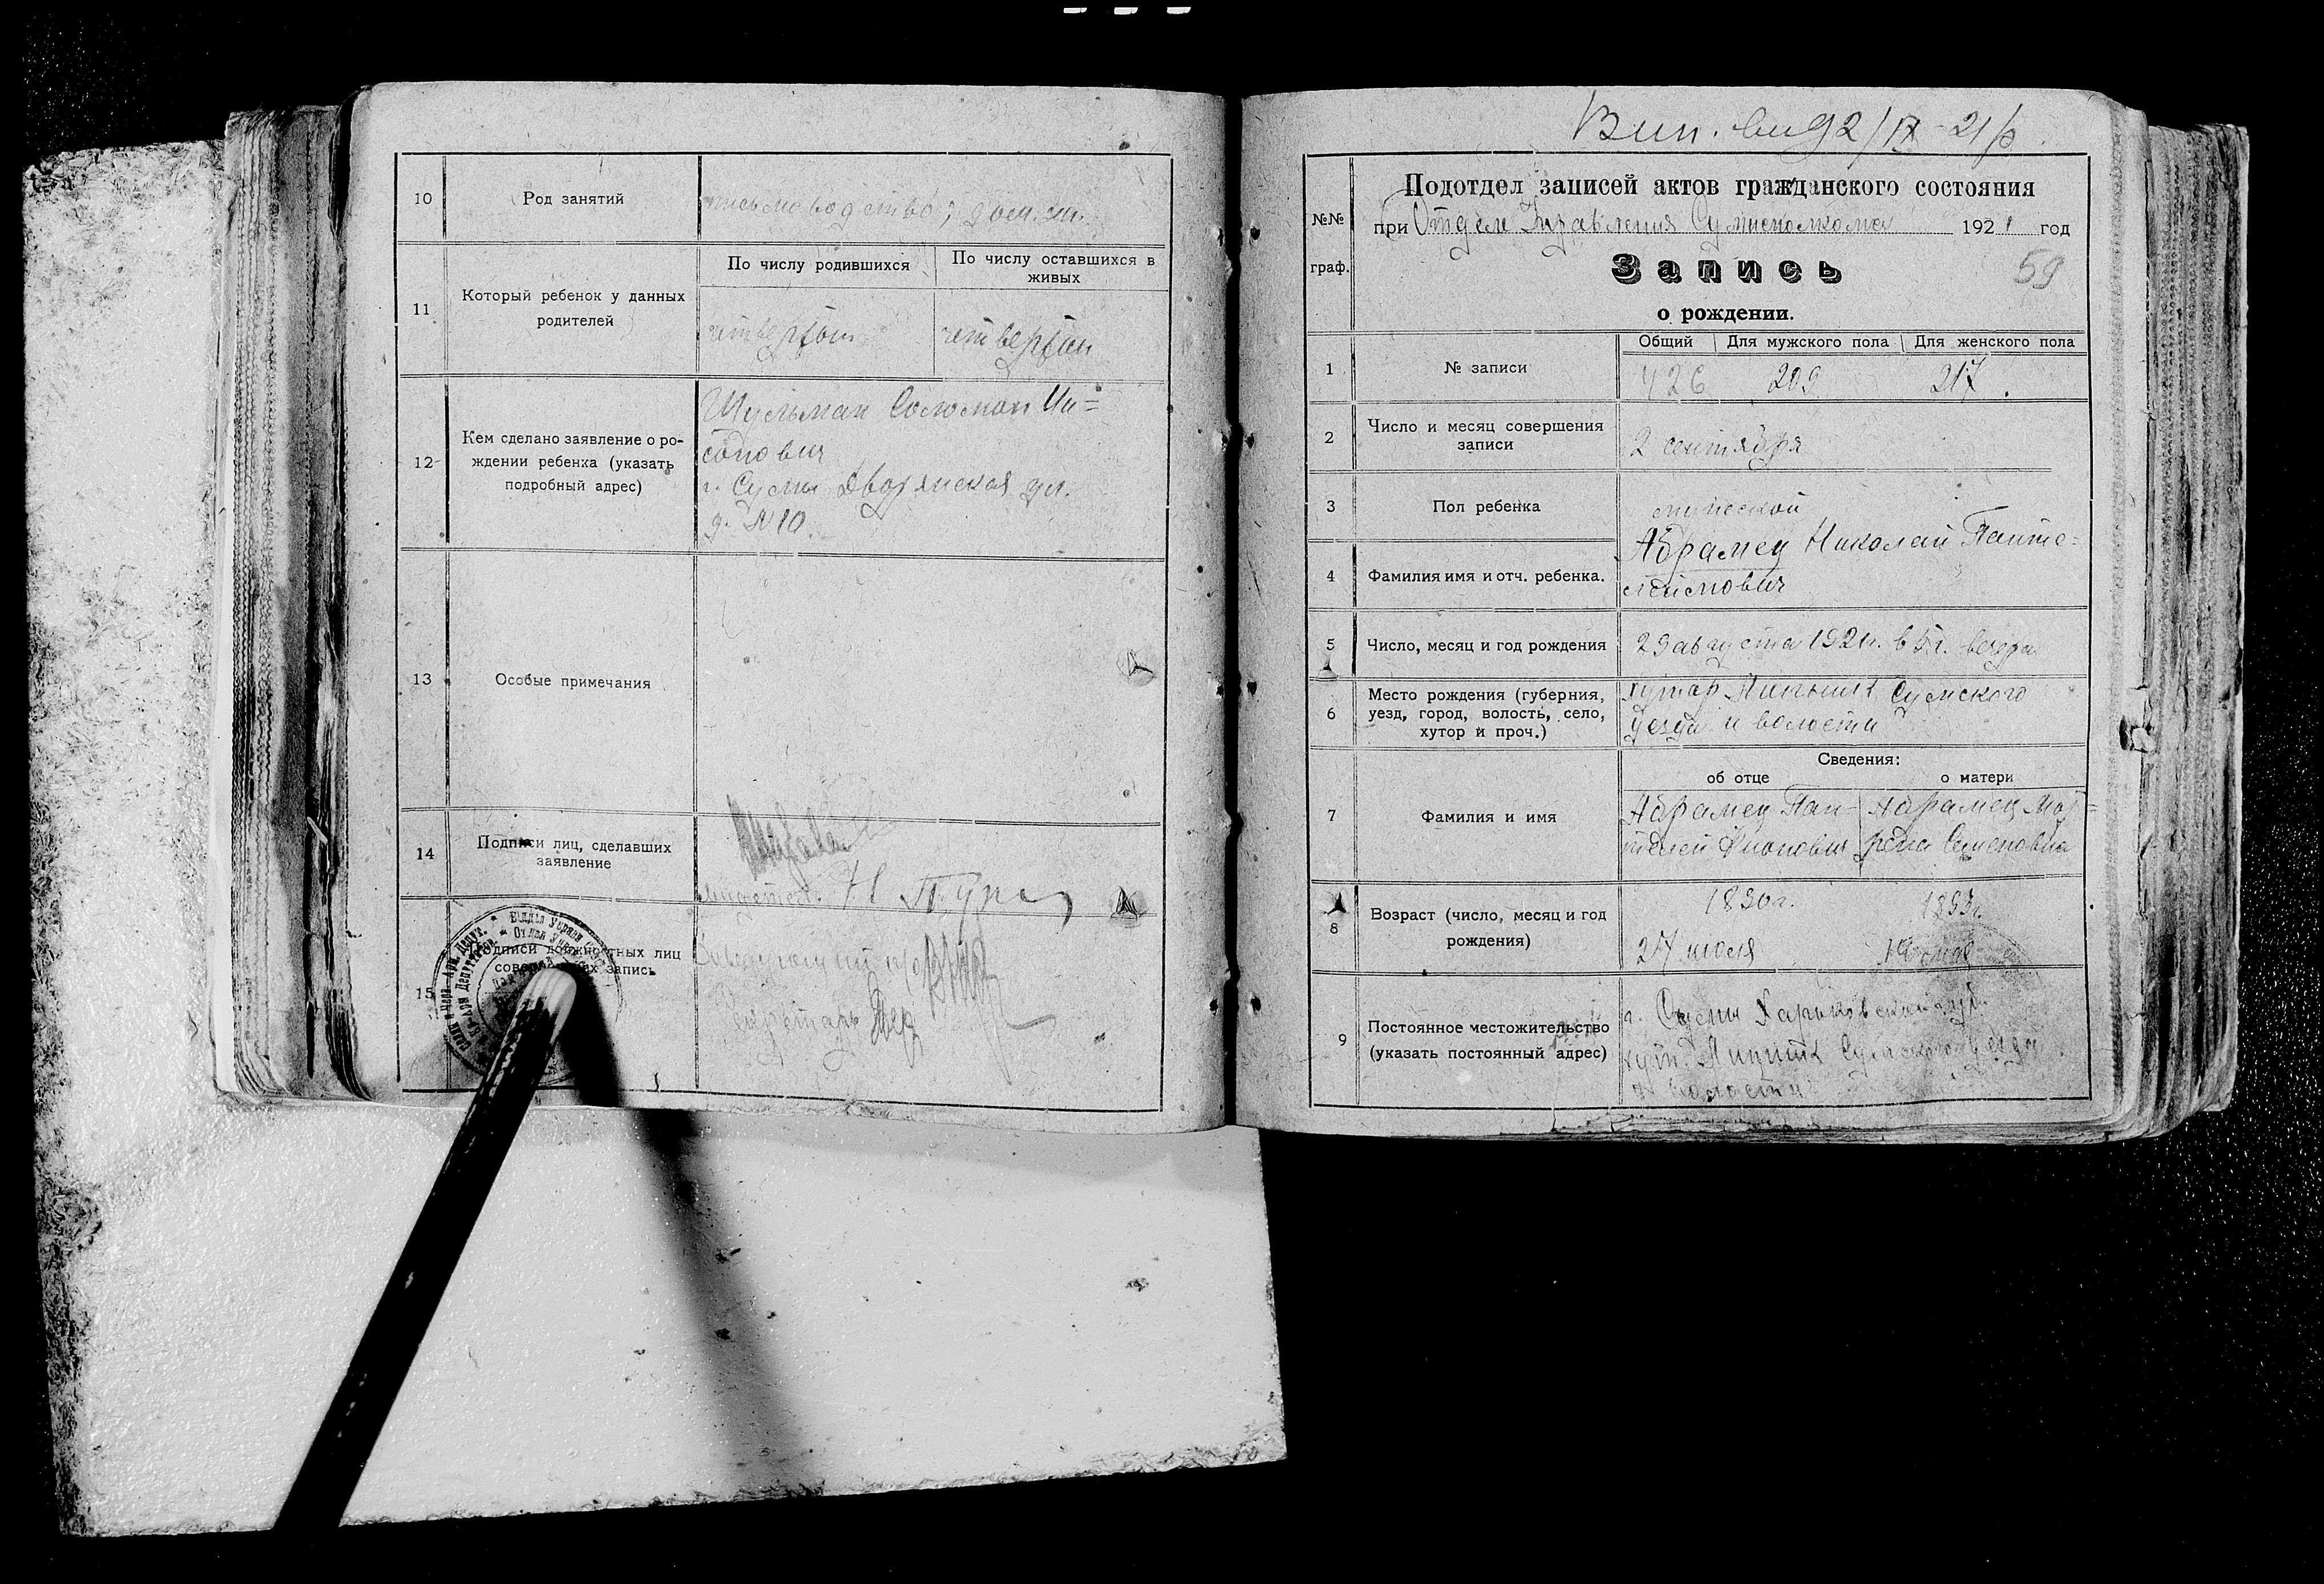 10
Род занятий
11
Который ребенок у данных
родителей
По числу родившихся
По числу оставшихся в
живых
четвертый
четвертый
12
Кем сделано заявление о ро-
ждении ребенка (указать
подробный адрес)
Шульман Соломон
г. Сумы Дворянская ул.
д. №10.
13
Особые примечания
14
Подписи лиц, сделавших
заявление
15
Подписи должностных лиц
запись
Секретарь
Вип. вид 2/IX-21 р.
№№
граф.
Подотдел записей актов гражданского состояния
при Отделе Управления Сумисполкома 1921 год
Запись
59
о рождении.
1
№ записи
Общий
Для мужского пола
Для женского пола
426
209
217.
2
Число и месяц совершения
записи
2 сентября
3
Пол ребенка
мужеской
4
Фамилия имя и отч. ребенка.
Абрамец Николай Панте=
леймонович
5
Число, месяц и год рождения
29 августа 1921г. в 5 ч. вечера
6
Место рождения (губерния,
уезд, город, волость, село,
хутор и проч.)
хутор Сумского
уезда и волости
Сведения:
об отце
о матери
7
Фамилия и имя
Абрамец Пан-
телей
Абрамец Мот=
рена Семеновна
8
Возраст (число, месяц и год
рождения)
27 июля
9
Постоянное местожительство
(указать постоянный адрес)
г. Сумы Харьковской губ.
хут. Сумского уезда
и волости